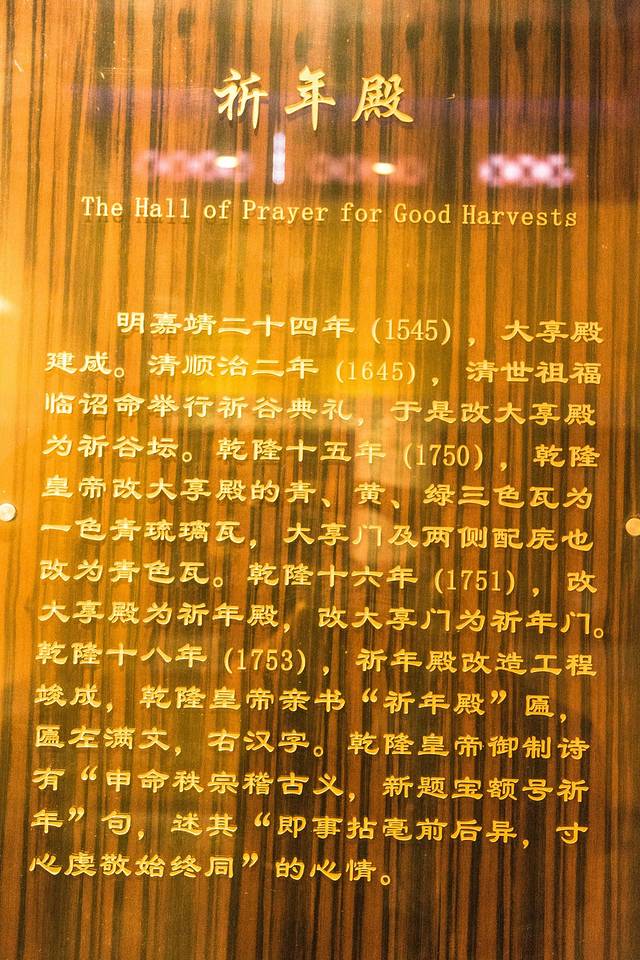 祈年殿
The Hall of Prayer for Good Harvests
明嘉靖二十四年 (1545) ，大享殿
建成。清顺治二年 (1645) ，清世祖福
临诏命举行祈谷典礼，于是改大享殿
为祈谷坛。乾隆十五年 (1750) ，乾隆
皇帝改大享殿的青、黄、绿三色瓦为
一色青琉璃瓦，大享门及两侧配庑也
改为青色瓦。乾隆十六年 (1751) ，改
大享殿为祈年殿，改大享门为祈年门。
乾隆十八年 (1753) ，祈年殿改造工程
竣成，乾隆皇帝亲书“祈年殿”匾，
匾左满文，右汉字。乾隆皇帝御制诗
有“申命秩宗稽古义，新题宝额号祈
年”句，述其“即事拈毫前后异，寸
心虔敬始终同”的心情。